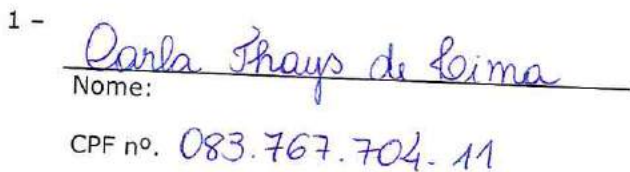 1 -
Carla Thays de Lima
Nome:
CPF nº. 083.767.704-11